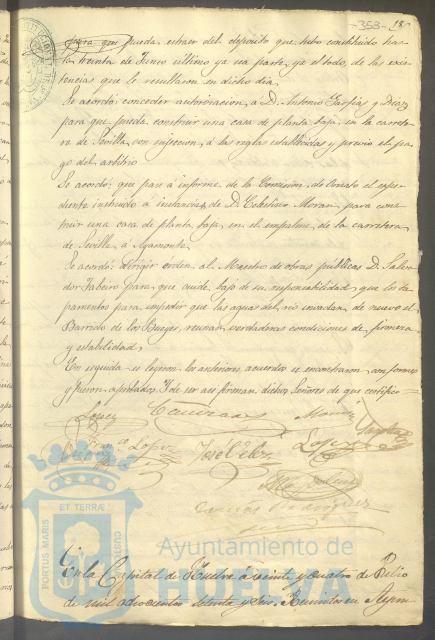 -353- 18
para que pueda extraer del depósito que tubo constituido has
ta treinta de Junio último ya sea parte, ya el todo, de las exis
tencias que le resultaron en dicho dia.
Se acordó conceder autorizacion, á D. Antonio Farfias y Diaz
para que pueda construir una casa de planta baja, en la carrete
ra de Sevilla, con sujecion, á las reglas establecidas y previo el pa
go del arbitrio
Se acordó: que pase á informe, de la Comision, de Ornato el espe
diente instruido á instancias, de D. Celestino Moran, para cons
truir una casa de planta baja, en el empalme de la carretera
de Sevilla á Ayamonte.
Se acordó: dirigir órden, al Maestro de obras públicas, D. Salva
dor para, que cuide, bajo de su responsabilidad, que los ta
pamentos para impedir que las aguas del rio invadan de nuevo el
Barrido de los reunan verdaderas condiciones de firmeza
y estabilidad.
En seguida se leyeron los anteriores, acuerdos se encontraron conformes
y fueron aprobados. Y de ser asi firman dichos Señores de que certifico
Lopez
Lopez José Lopez
Rodriguez
PORTUS MARIS ET TERRÆ CUSTODIA
Ayuntamiento de
HUELVA
En la Capital de Huelva á veinte y cuatro de Julio
de mil ochocientos setenta y seis. Reunidos en Ayun